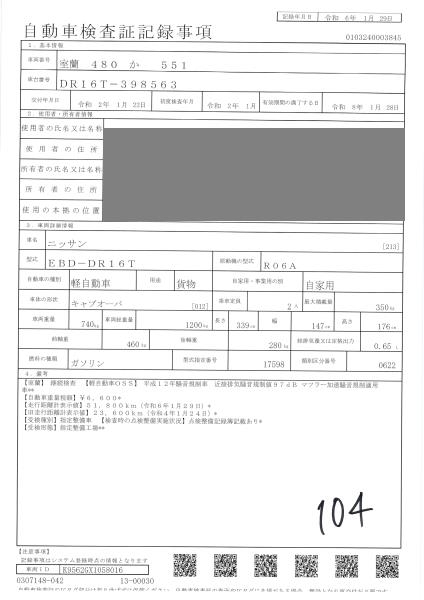 記録年月日 令和 6年 1月 29日
自動車検査証記録事項
0103240003845
1．基本情報
車両番号 室蘭 480 か 551
車台番号 DR16T－398563
交付年月日 令和 2年 1月 23日 初度検査年月 令和 2年 1月 有効期間の満了する日 令和 8年 1月 28日
2．使用者・所有者情報
使用者の氏名又は名称
使用者の住所
所有者の氏名又は名称
所有者の住所
使用の本拠の位置
3．車両詳細情報
車名 ニッサン [213]
型式 EBD－DR16T 原動機の型式 R06A
自動車の種別 軽自動車 用途 貨物 自家用・事業用の別 自家用
車体の形状 キャブオーバ [012] 乗車定員 2人 最大積載量 350kg
車両重量 740kg 車両総重量 1200kg 長さ 339cm 幅 147cm 高さ 176cm
前軸重 460kg 後軸重 280kg 総排気量又は定格出力 0.65 L
燃料の種類 ガソリン 型式指定番号 17598 類別区分番号 0622
4．備考
【室蘭】 継続検査 【軽自動車OSS】 平成12年騒音規制車 近接排気騒音規制値97dB マフラー加速騒音規制適用
車**
【自動車重量税額】￥6，600*
【走行距離計表示値】51，800km（令和6年1月29日）*
【旧走行距離計表示値】23，600km（令和4年1月24日）*
【受検種別】指定整備車 【検査時の点検整備実施状況】点検整備記録簿記載あり*
【受検形態】指定整備工場**
104
【注意事項】
記録事項はシステム登録時点の情報となります
車両ID K9562GX1058016
0307148-042 13-00030